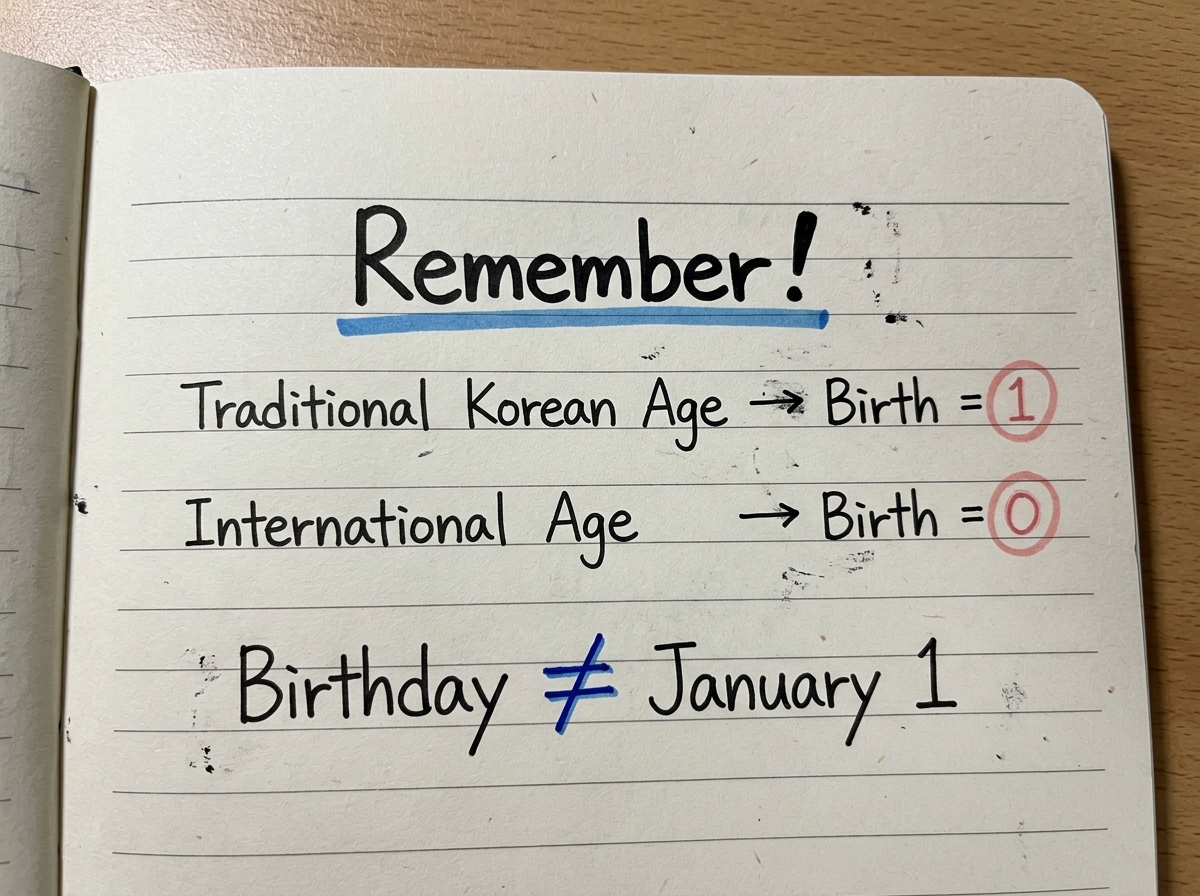 Remember!
Traditional Korean Age → Birth = 1
International Age → Birth = 0
Birthday ≠ January 1